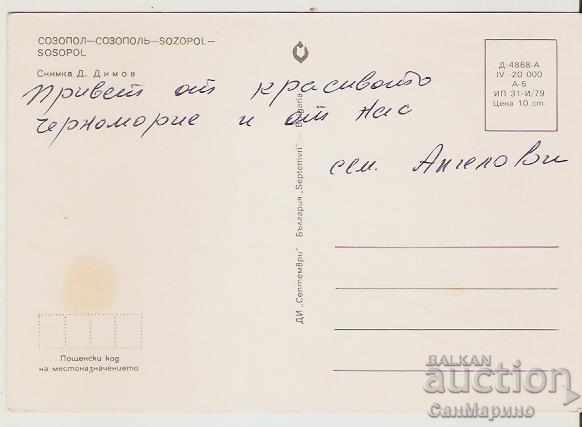 СОЗОПОЛ—СОЗОПОЛЬ—SOZOPOL—
SOSOPOL
Снимка Д. Димов
Привет от красивото
черноморие и от нас
сем. Ангелови
Д-4868-А
IV 20 000
А-6
ИП 31-И/79
Цена 10 ст.
ДИ „Септември" България „Septemvri" Bulgaria
Пощенски код
на местоназначението
BALKAN
auction
СанМарино